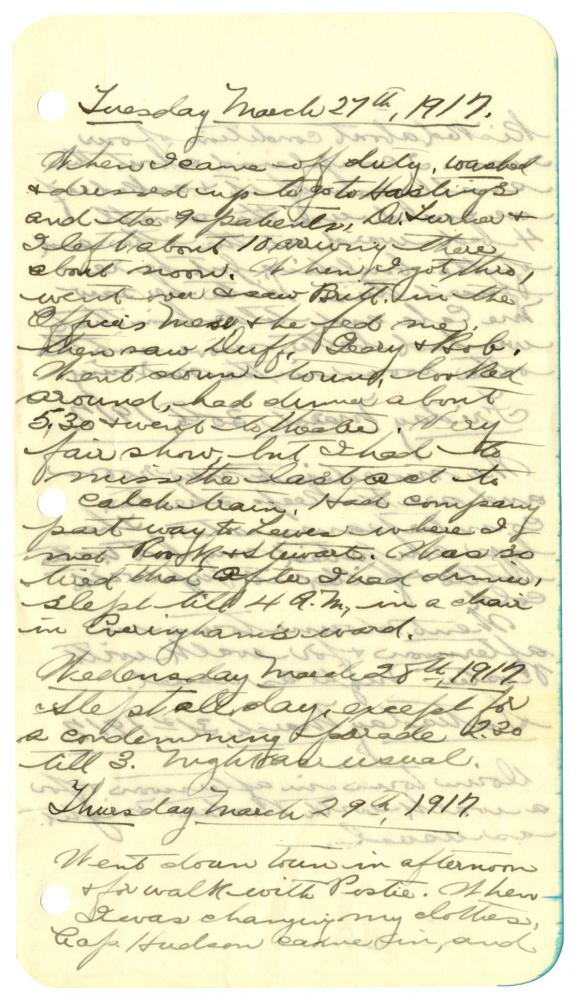 Tuesday March 27th, 1917.
When I came off duty, washed
& dressed up to go to Hastings
and the 9 patients, Dr. &
I left about 10 arriving there
about noon. When I got thro,
went over & saw Britt. in the
Officers Mess, & he fed me,
then saw Duff, & Bob.
Went down town, looked
around, had dinner about
5.30 & went to theatre. Very
fair show, but I had to
miss the last act to
catch train. Had company
part way to Lewes where I
met Rook & Stewart. Was so
tired that after I had dinner,
slept till 4 A.M., in a chair
in Everingham's ward.
Wedensday March 28th, 1917
Slept all day, except for
a condemning parade 2.30
till 3. Night as usual.
Thursday March 29th, 1917.
Went down town in afternoon
& for walk with Postie. When
I was changing my clothes,
Cap. Hudson came in, and